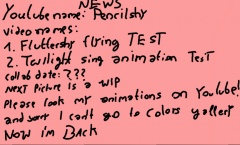 NEWS
Youtube name: Pencilshy
video names:
1. Fluttershy flying TEST
2. Twilight sing animation TesT
collab date: ???
NEXT Picture is a WIP
Please look my animations on Youtube!
and sorry I cadt go to Colors gallery
Now i'm Back